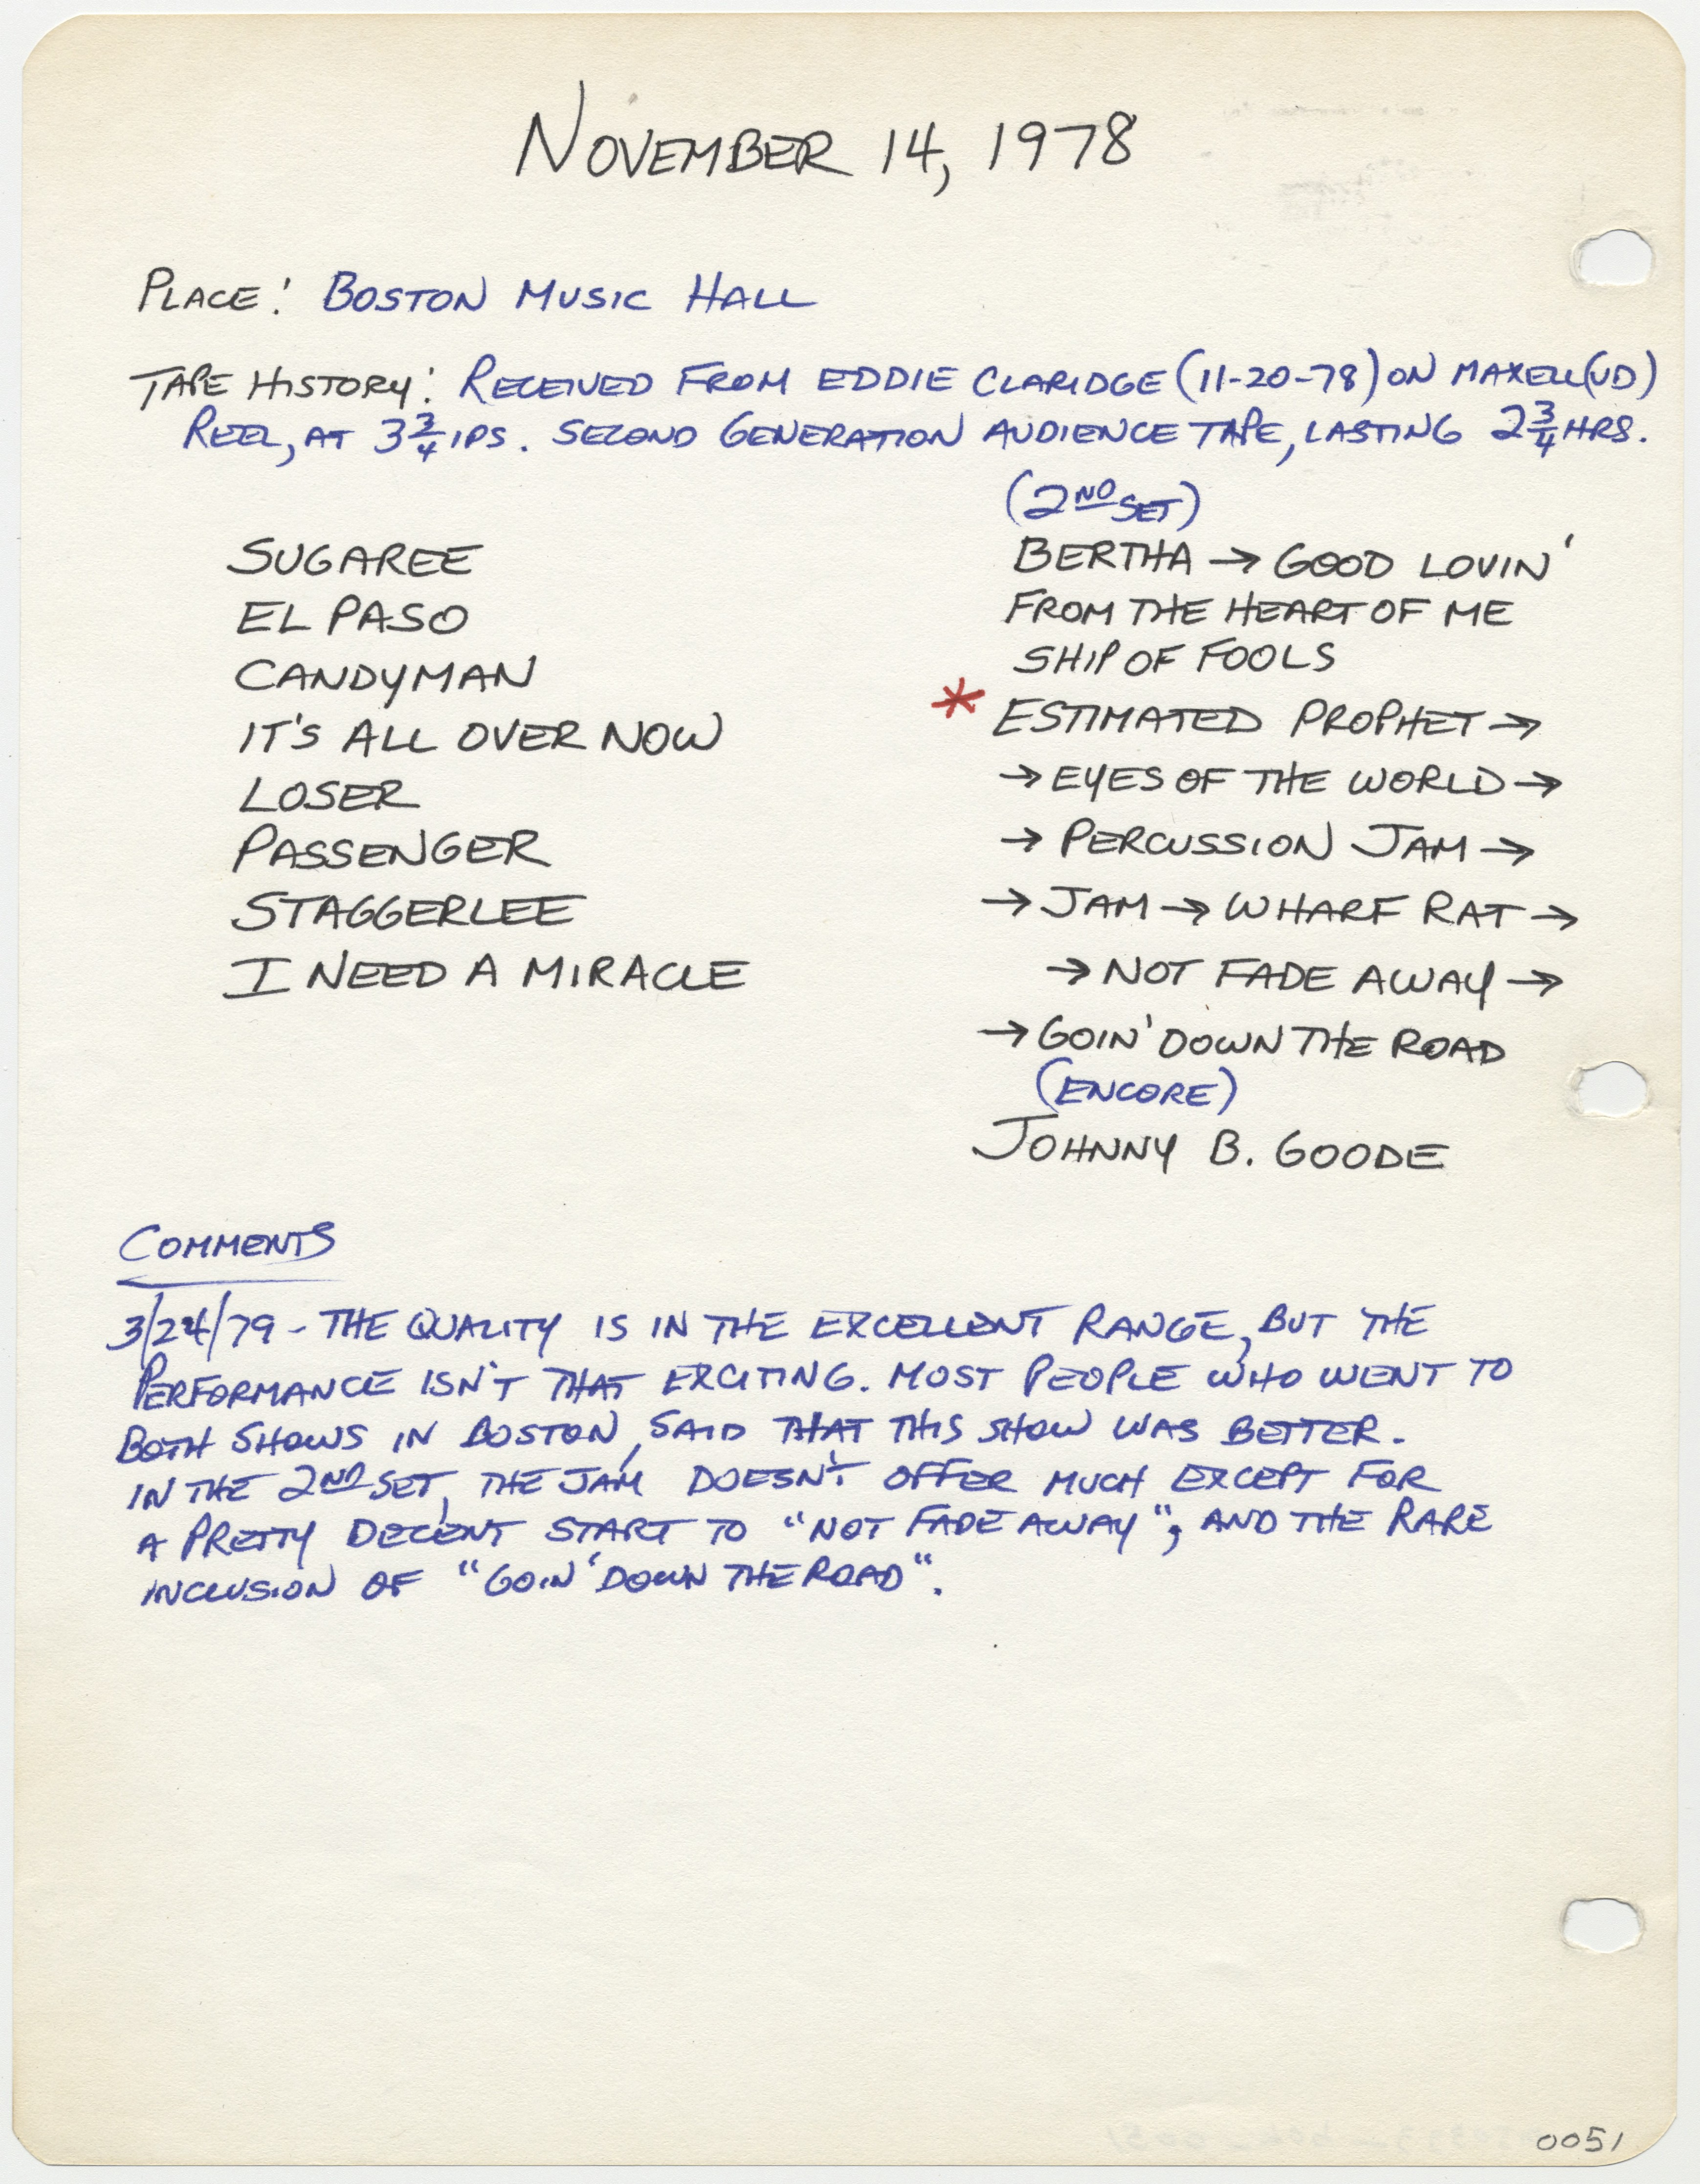 NOVEMBER 14, 1978
PLACE: BOSTON MUSIC HALL
TAPE HISTORY: RECEIVED FROM EDDIE CLARIDGE (11-20-78) ON MAXELL (UD)
REEL, AT 3 3/4 IPS. SECOND GENERATION AUDIENCE TAPE, LASTING 2 3/4 HRS.
SUGAREE
EL PASO
CANDYMAN
IT'S ALL OVER NOW
LOSER
PASSENGER
STAGGERLEE
I NEED A MIRACLE
(2ND SET)
BERTHA → GOOD LOVIN'
FROM THE HEART OF ME
SHIP OF FOOLS
* ESTIMATED PROPHET →
→ EYES OF THE WORLD →
→ PERCUSSION JAM →
→ JAM → WHARF RAT →
→ NOT FADE AWAY →
→ GOIN' DOWN THE ROAD
(ENCORE)
JOHNNY B. GOODE
COMMENTS
3/24/79 - THE QUALITY IS IN THE EXCELLENT RANGE, BUT THE
PERFORMANCE ISN'T THAT EXCITING. MOST PEOPLE WHO WENT TO
BOTH SHOWS IN BOSTON, SAID THAT THIS SHOW WAS BETTER.
IN THE 2ND SET, THE JAM DOESN'T OFFER MUCH EXCEPT FOR
A PRETTY DECENT START TO "NOT FADE AWAY", AND THE RARE
INCLUSION OF "GOIN' DOWN THE ROAD".
0051